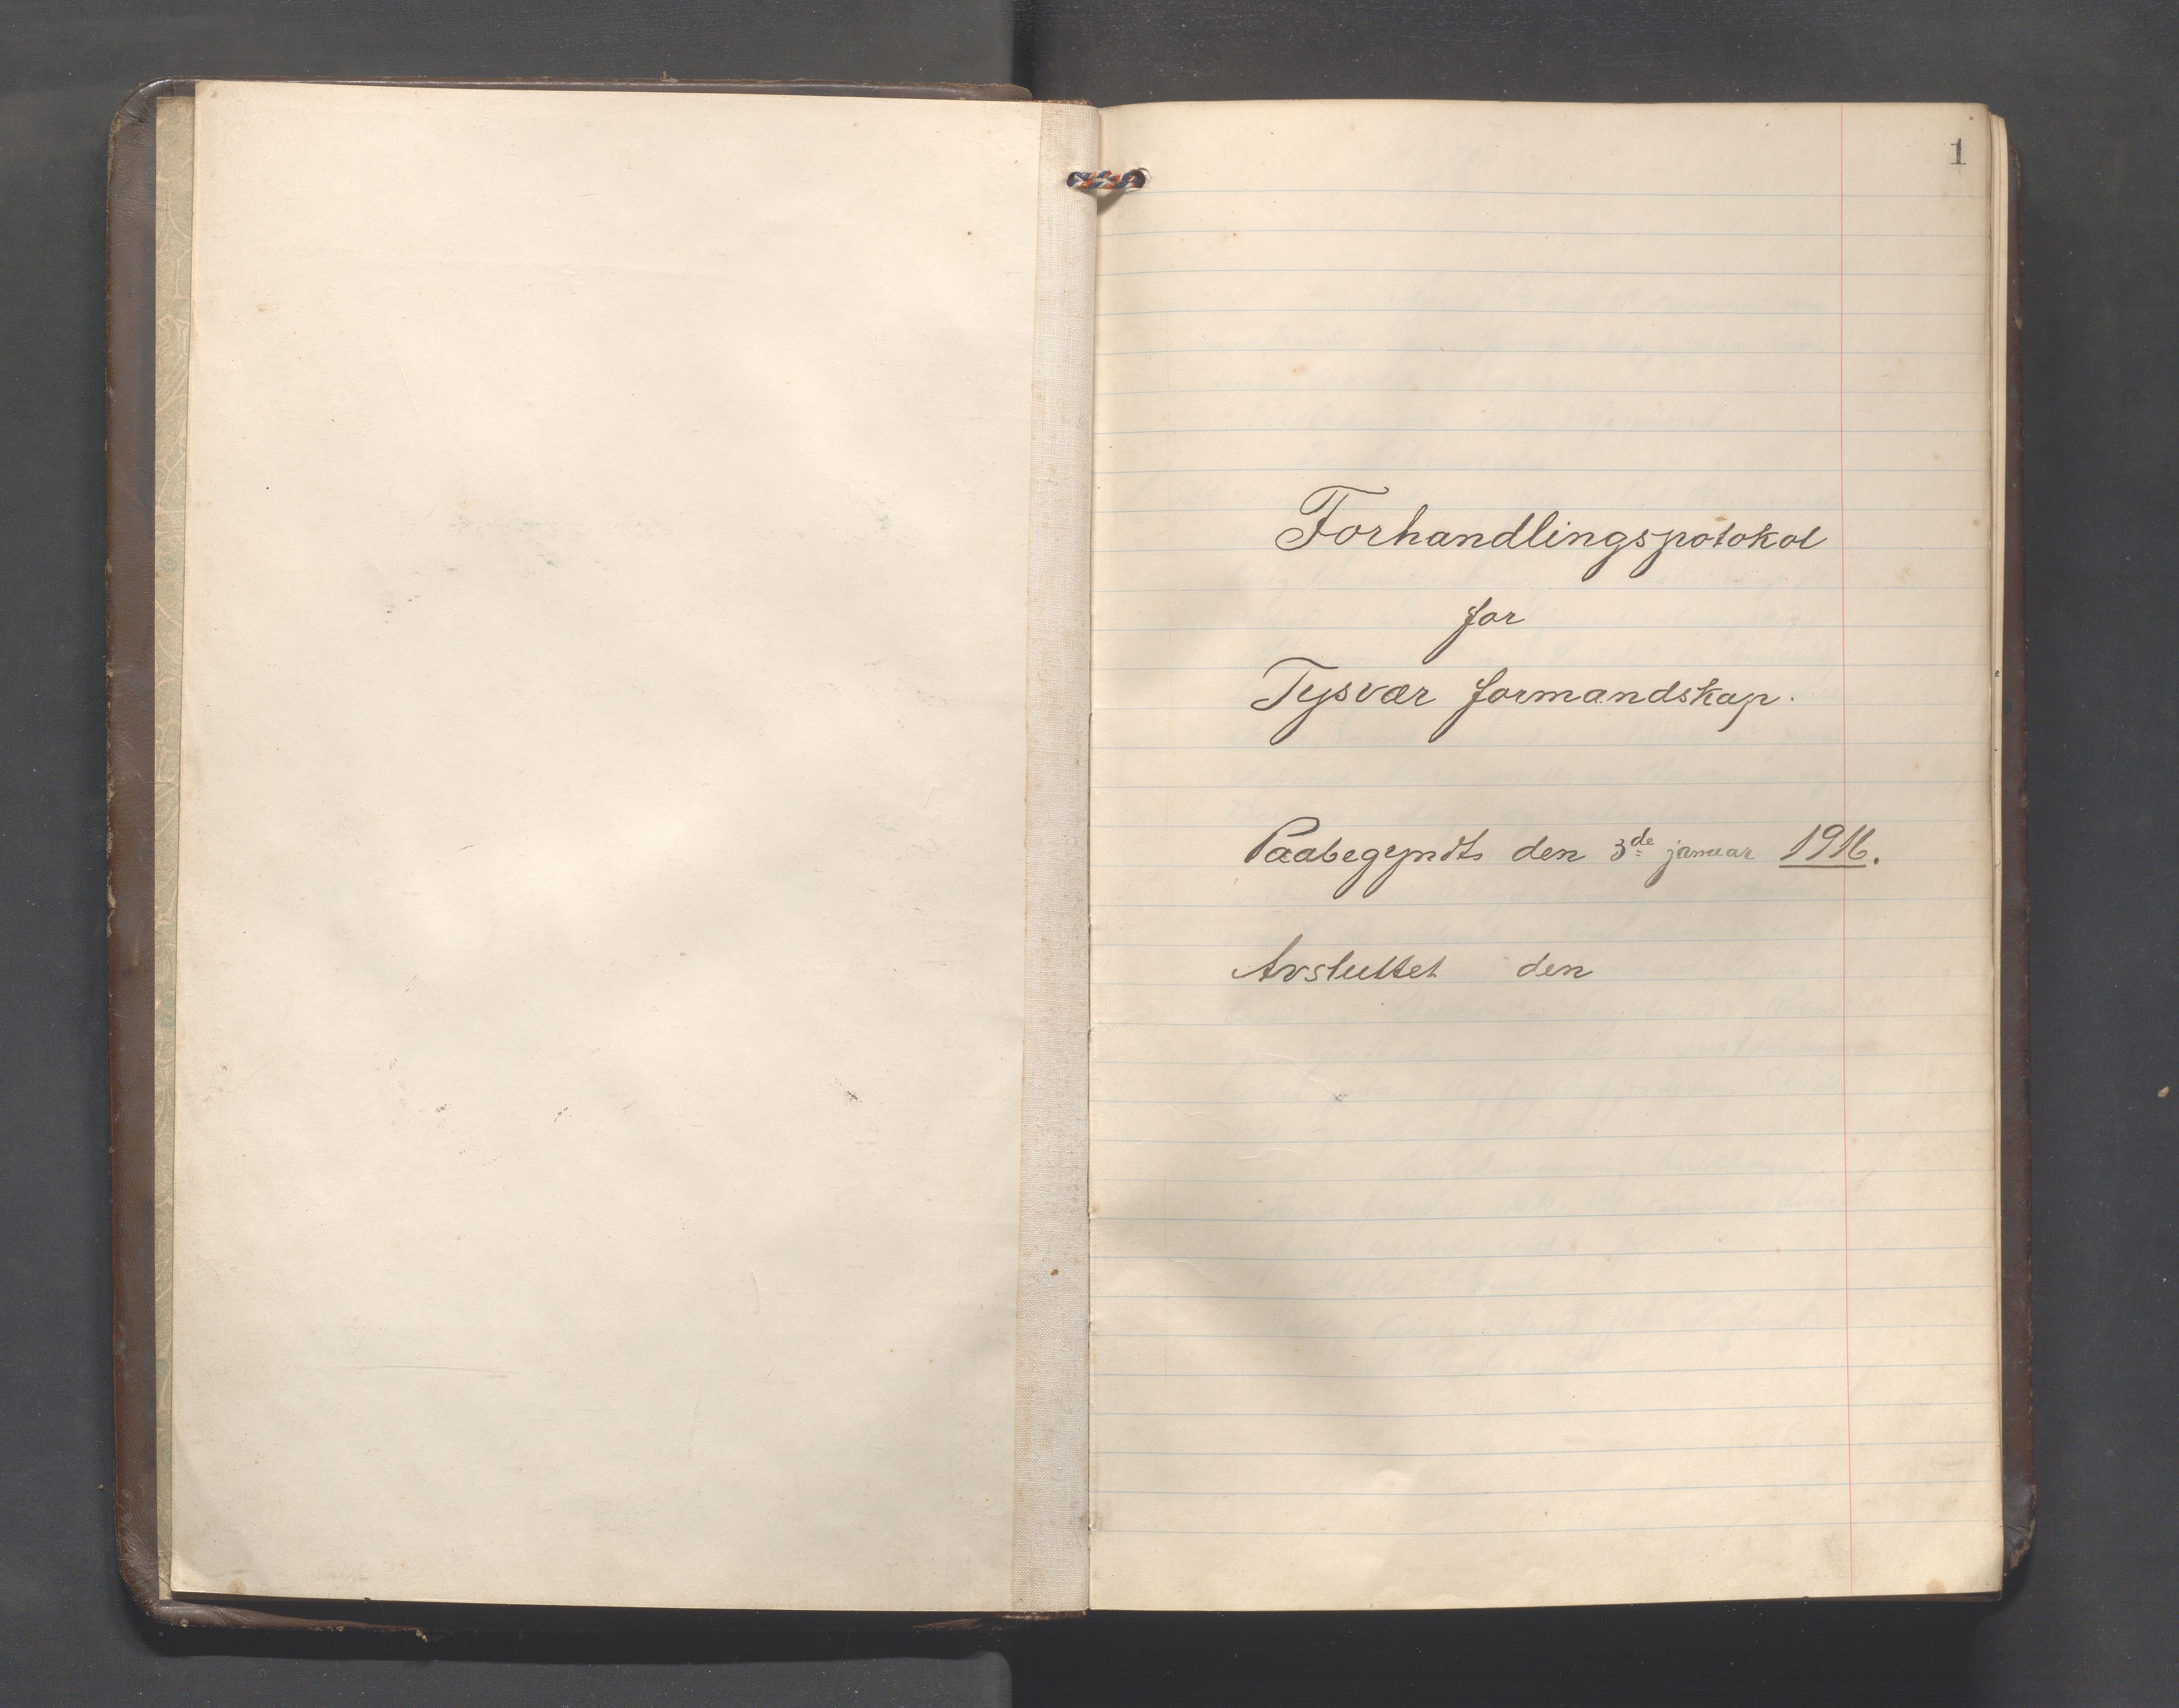 1
Forhandlingspotokol
for
Tysvær formandskap.
Paabegyndts den 3de januar 1916.
Avsluttet den